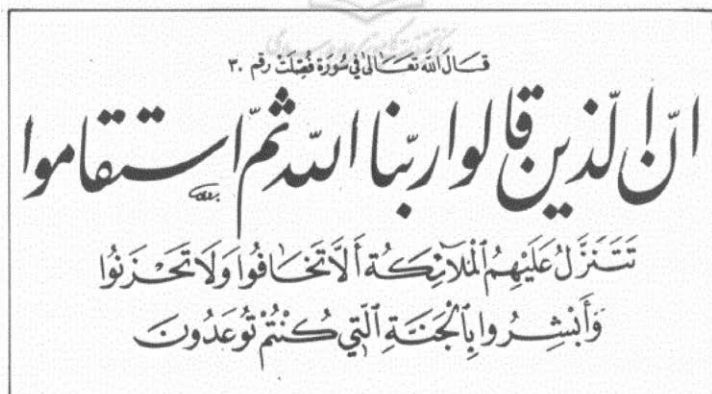 قَالَ اللهُ تَعَالىٰ في سُورَة فُصِّلَتْ رقم ٣٠
انّ الّذين قالوا ربّنا الله ثمّ استقاموا
تَتَنَزَّلُ عَلَيْهِمُ ٱلْمَلَآئِكَةُ أَلَّا تَخَافُوا وَلَا تَحْزَنُوا
وَأَبْشِرُوا بِٱلْجَنَّةِ ٱلَّتِي كُنْتُمْ تُوعَدُونَ